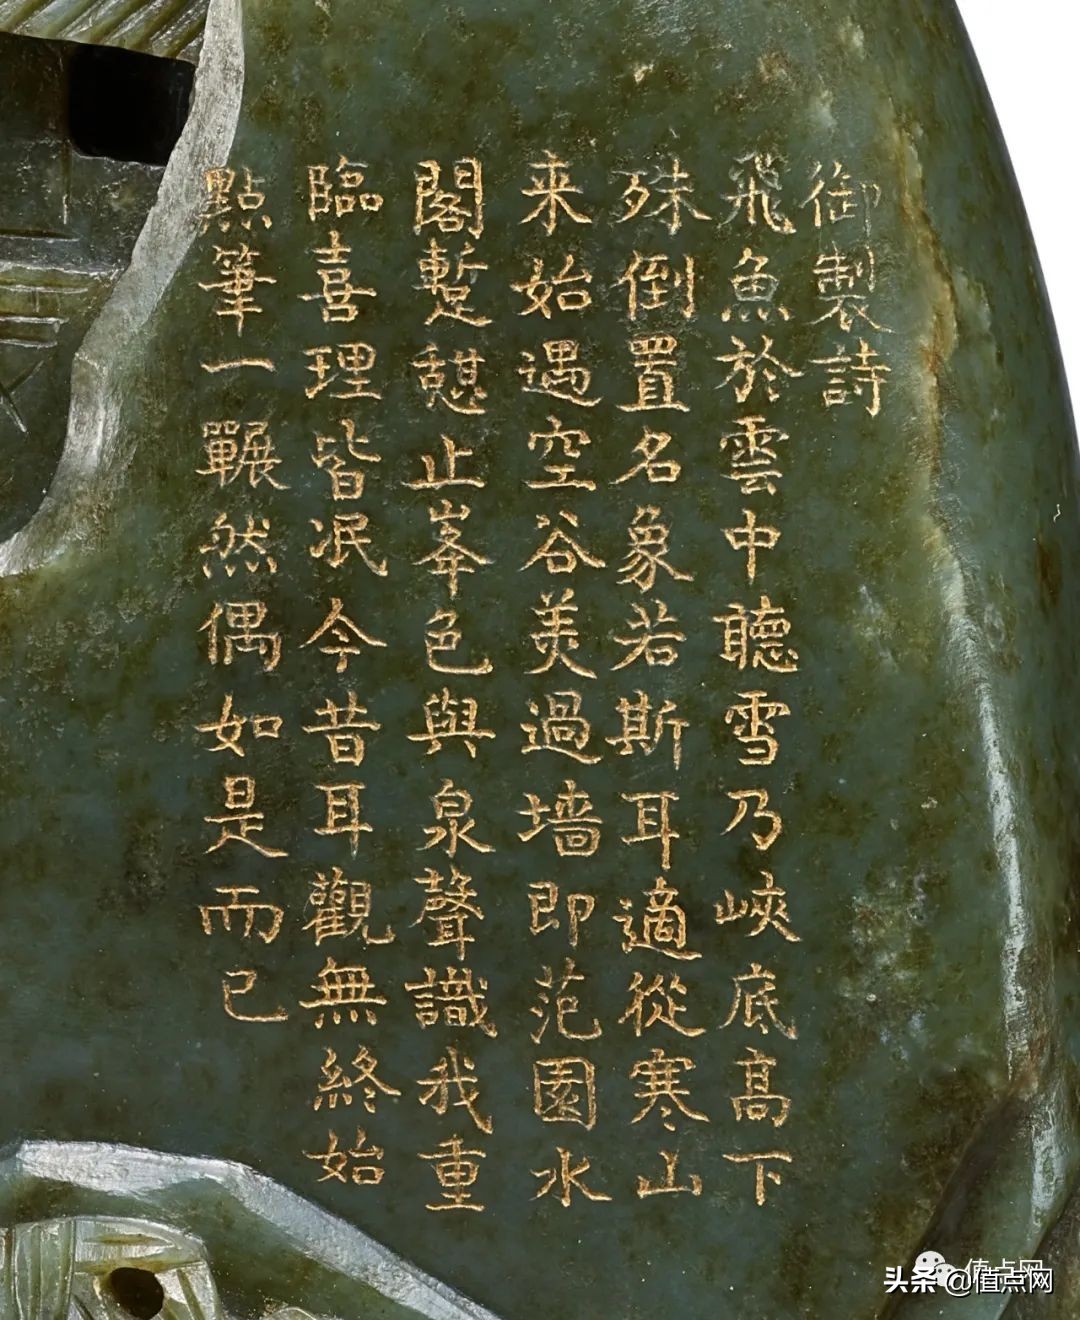 御製詩
飛魚於雲中聽雪乃峽底髙下
殊倒置名象若斯耳適從寒山
来始遇空谷羙過墙即范園水
閣蹔憇止峯色與泉聲識我重
臨喜理皆泯今昔耳觀無終始
點筆一囅然偶如是而已
值点网
头条 @值点网